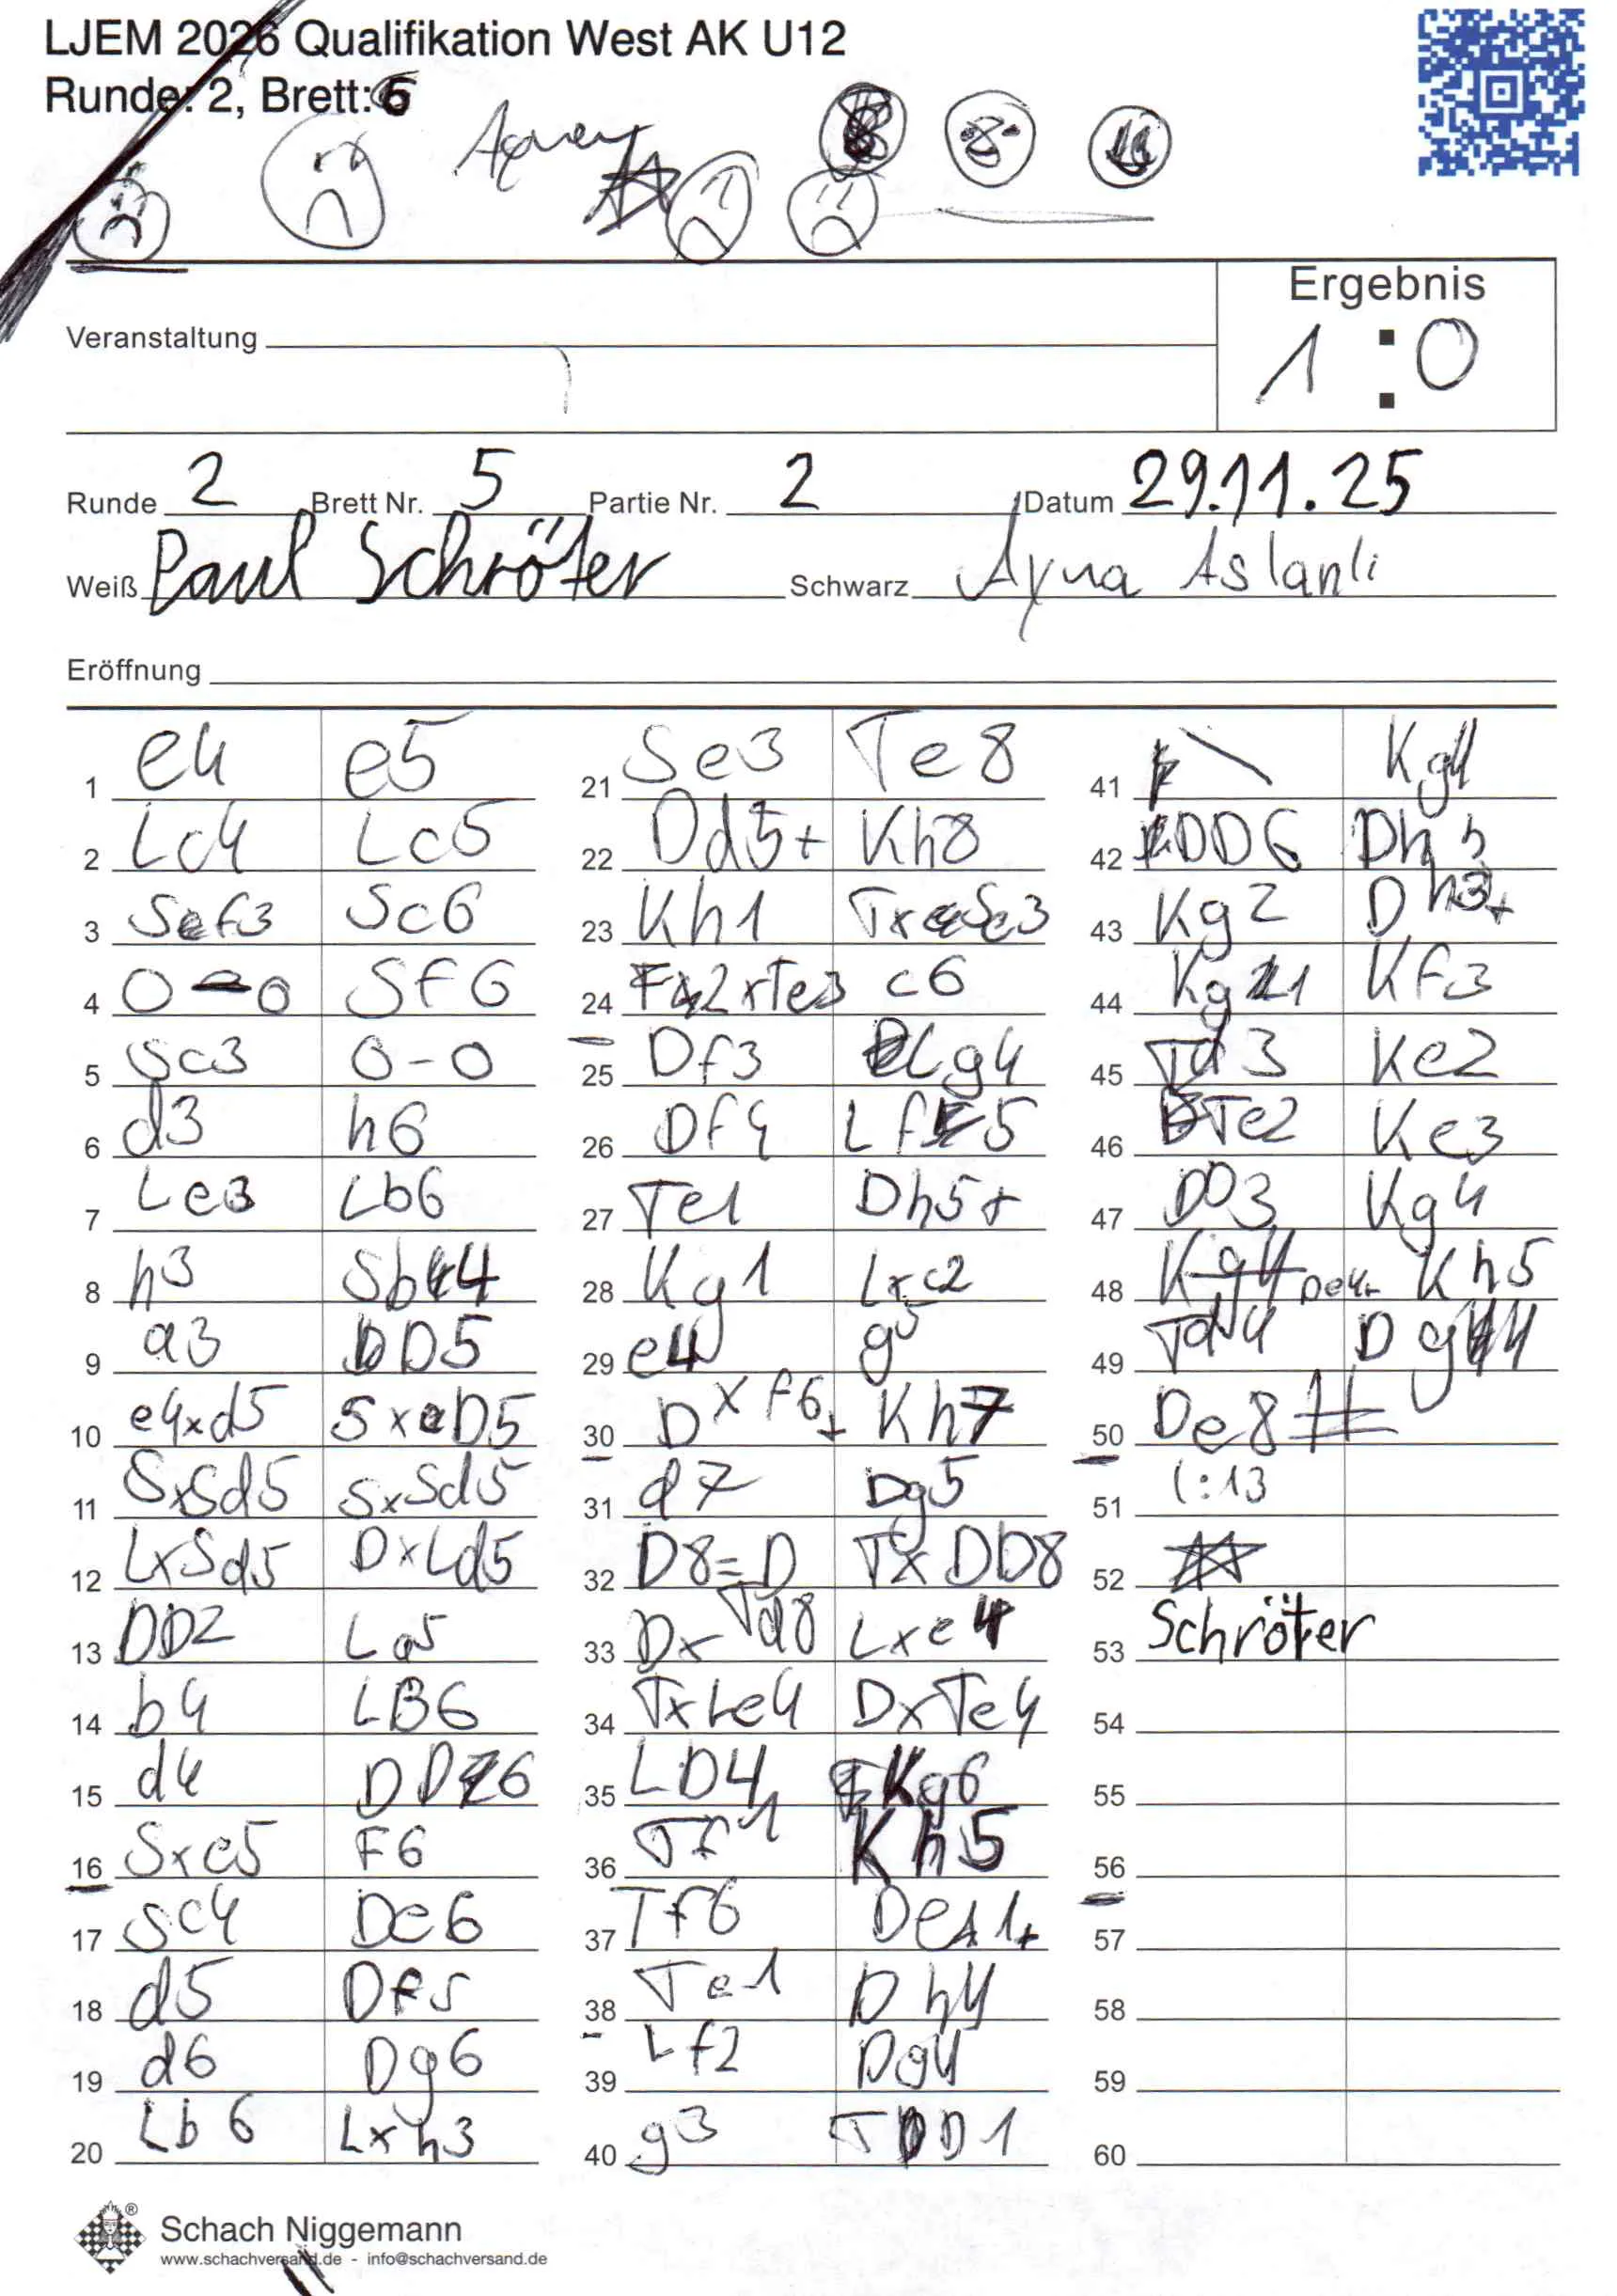 LJEM 2026 Qualifikation West AK U12
Runde: 2, Brett: 6
Ergebnis
1 : 0
Veranstaltung
Runde 2 Brett Nr. 5 Partie Nr. 2 Datum 29.11.25
Weiß Paul Schröter Schwarz Ayna Aslanli
Eröffnung
1 e4 e5
2 Lc4 Lc5
3 Sf3 Sc6
4 0-0 Sf6
5 Sc3 0-0
6 d3 h6
7 Le3 Lb6
8 h3 Sb4
9 a3 D5
10 e4xd5 SxD5
11 SxSd5 SxSd5
12 LxSd5 DxLd5
13 DD2 La5
14 b4 LB6
15 d4 DD6
16 Sxe5 F6
17 Sc4 De6
18 d5 Df5
19 d6 Dg6
20 Lb6 Lxh3
21 Se3 Te8
22 Dd5+ Kh8
23 Kh1 TxSe3
24 F2xTe3 c6
25 Df3 Lg4
26 Df4 Lf5
27 Te1 Dh5+
28 Kg1 Lxc2
29 e4 g5
30 Dxf6+ Kh7
31 d7 Dg5
32 D8=D TxDD8
33 DxTd8 Lxe4
34 TxLe4 DxTe4
35 LD4 Kg6
36 Tf1 Kh5
37 Tf6 De1+
38 Te1 Dh4
39 Lf2 Dg4
40 g3 TD1
41 Kg4
42 DD6 Dh5
43 Kg2 Dh3+
44 Kg1 Kf3
45 Td3 Ke2
46 Te2 Ke3
47 DD3 Kg4
48 De4+ Kh5
49 Td4 Dg4
50 De8#
51 1:13
52
53 Schröter
54
55
56
57
58
59
60
Schach Niggemann
www.schachversand.de - info@schachversand.de